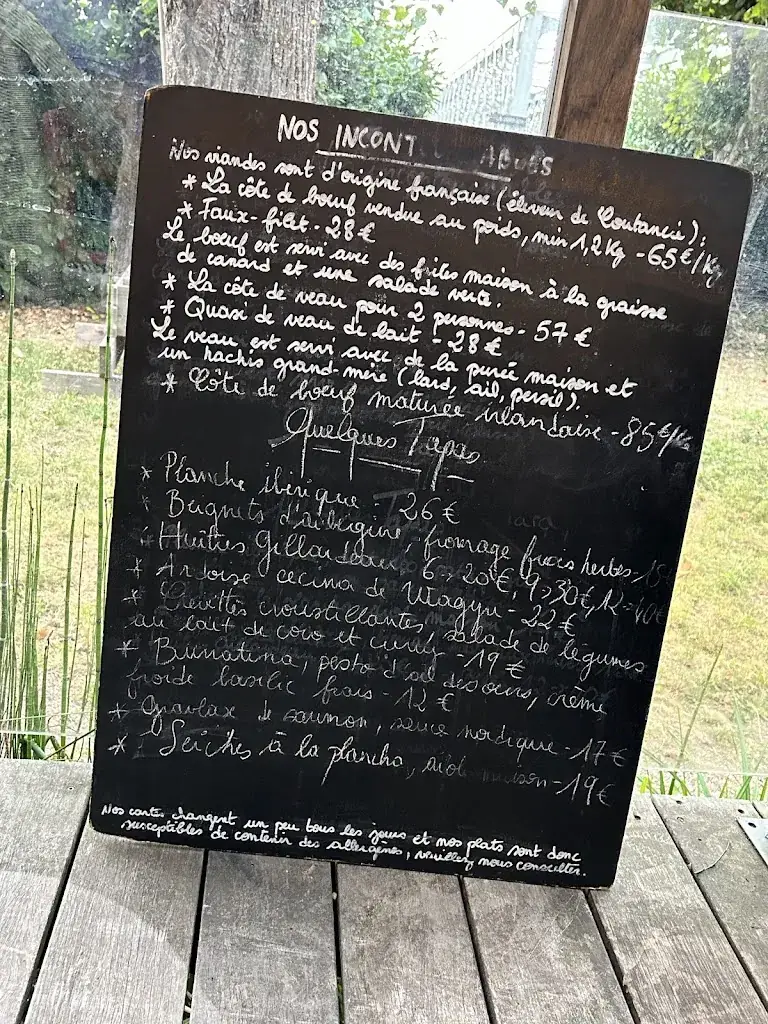 NOS INCONT ABLES
Nos viandes sont d'origine française (éleveur de Coutancie).
* La côte de bœuf vendue au poids, min 1,2 Kg - 65€/Kg
* Faux-filet - 28 €
Le bœuf est servi avec des frites maison à la graisse
de canard et une salade verte.
* La côte de veau pour 2 personnes - 57 €
* Quasi de veau de lait - 28 €
Le veau est servi avec de la purée maison et
un hachis grand-mère (lard, ail, persil).
* Côte de bœuf maturée irlandaise - 85€/Kg
Quelques Tapas
* Planche ibérique - 26 €
* Beignets d'aubergine, fromage frais herbes - 15
* Huîtres Gillardeau, 6 > 20€, 9 > 30€, 12 > 40€
* Ardoise cecina de Wagyu - 22 €
* Crevettes croustillantes, salade de légumes
au lait de coco et curry - 19 €
* Burratina, pesto d'ail des ours, crème
froide basilic frais - 12 €
* Gravlax de saumon, sauce nordique - 17 €
* Seiches à la plancha, aïoli maison - 19 €
Nos cartes changent un peu tous les jours et nos plats sont donc
susceptibles de contenir des allergènes, veuillez nous consulter.